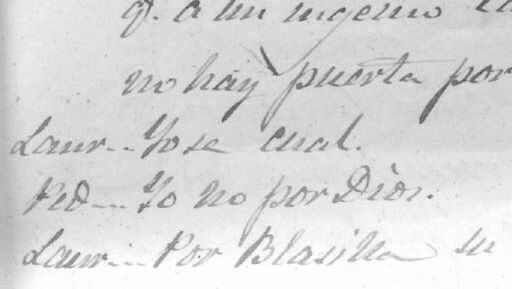 q. a un ingenio
no hay puerta por
Laur... Yo se cual.
Ped... Yo no por Dios.
Laur... Por Blasilla su